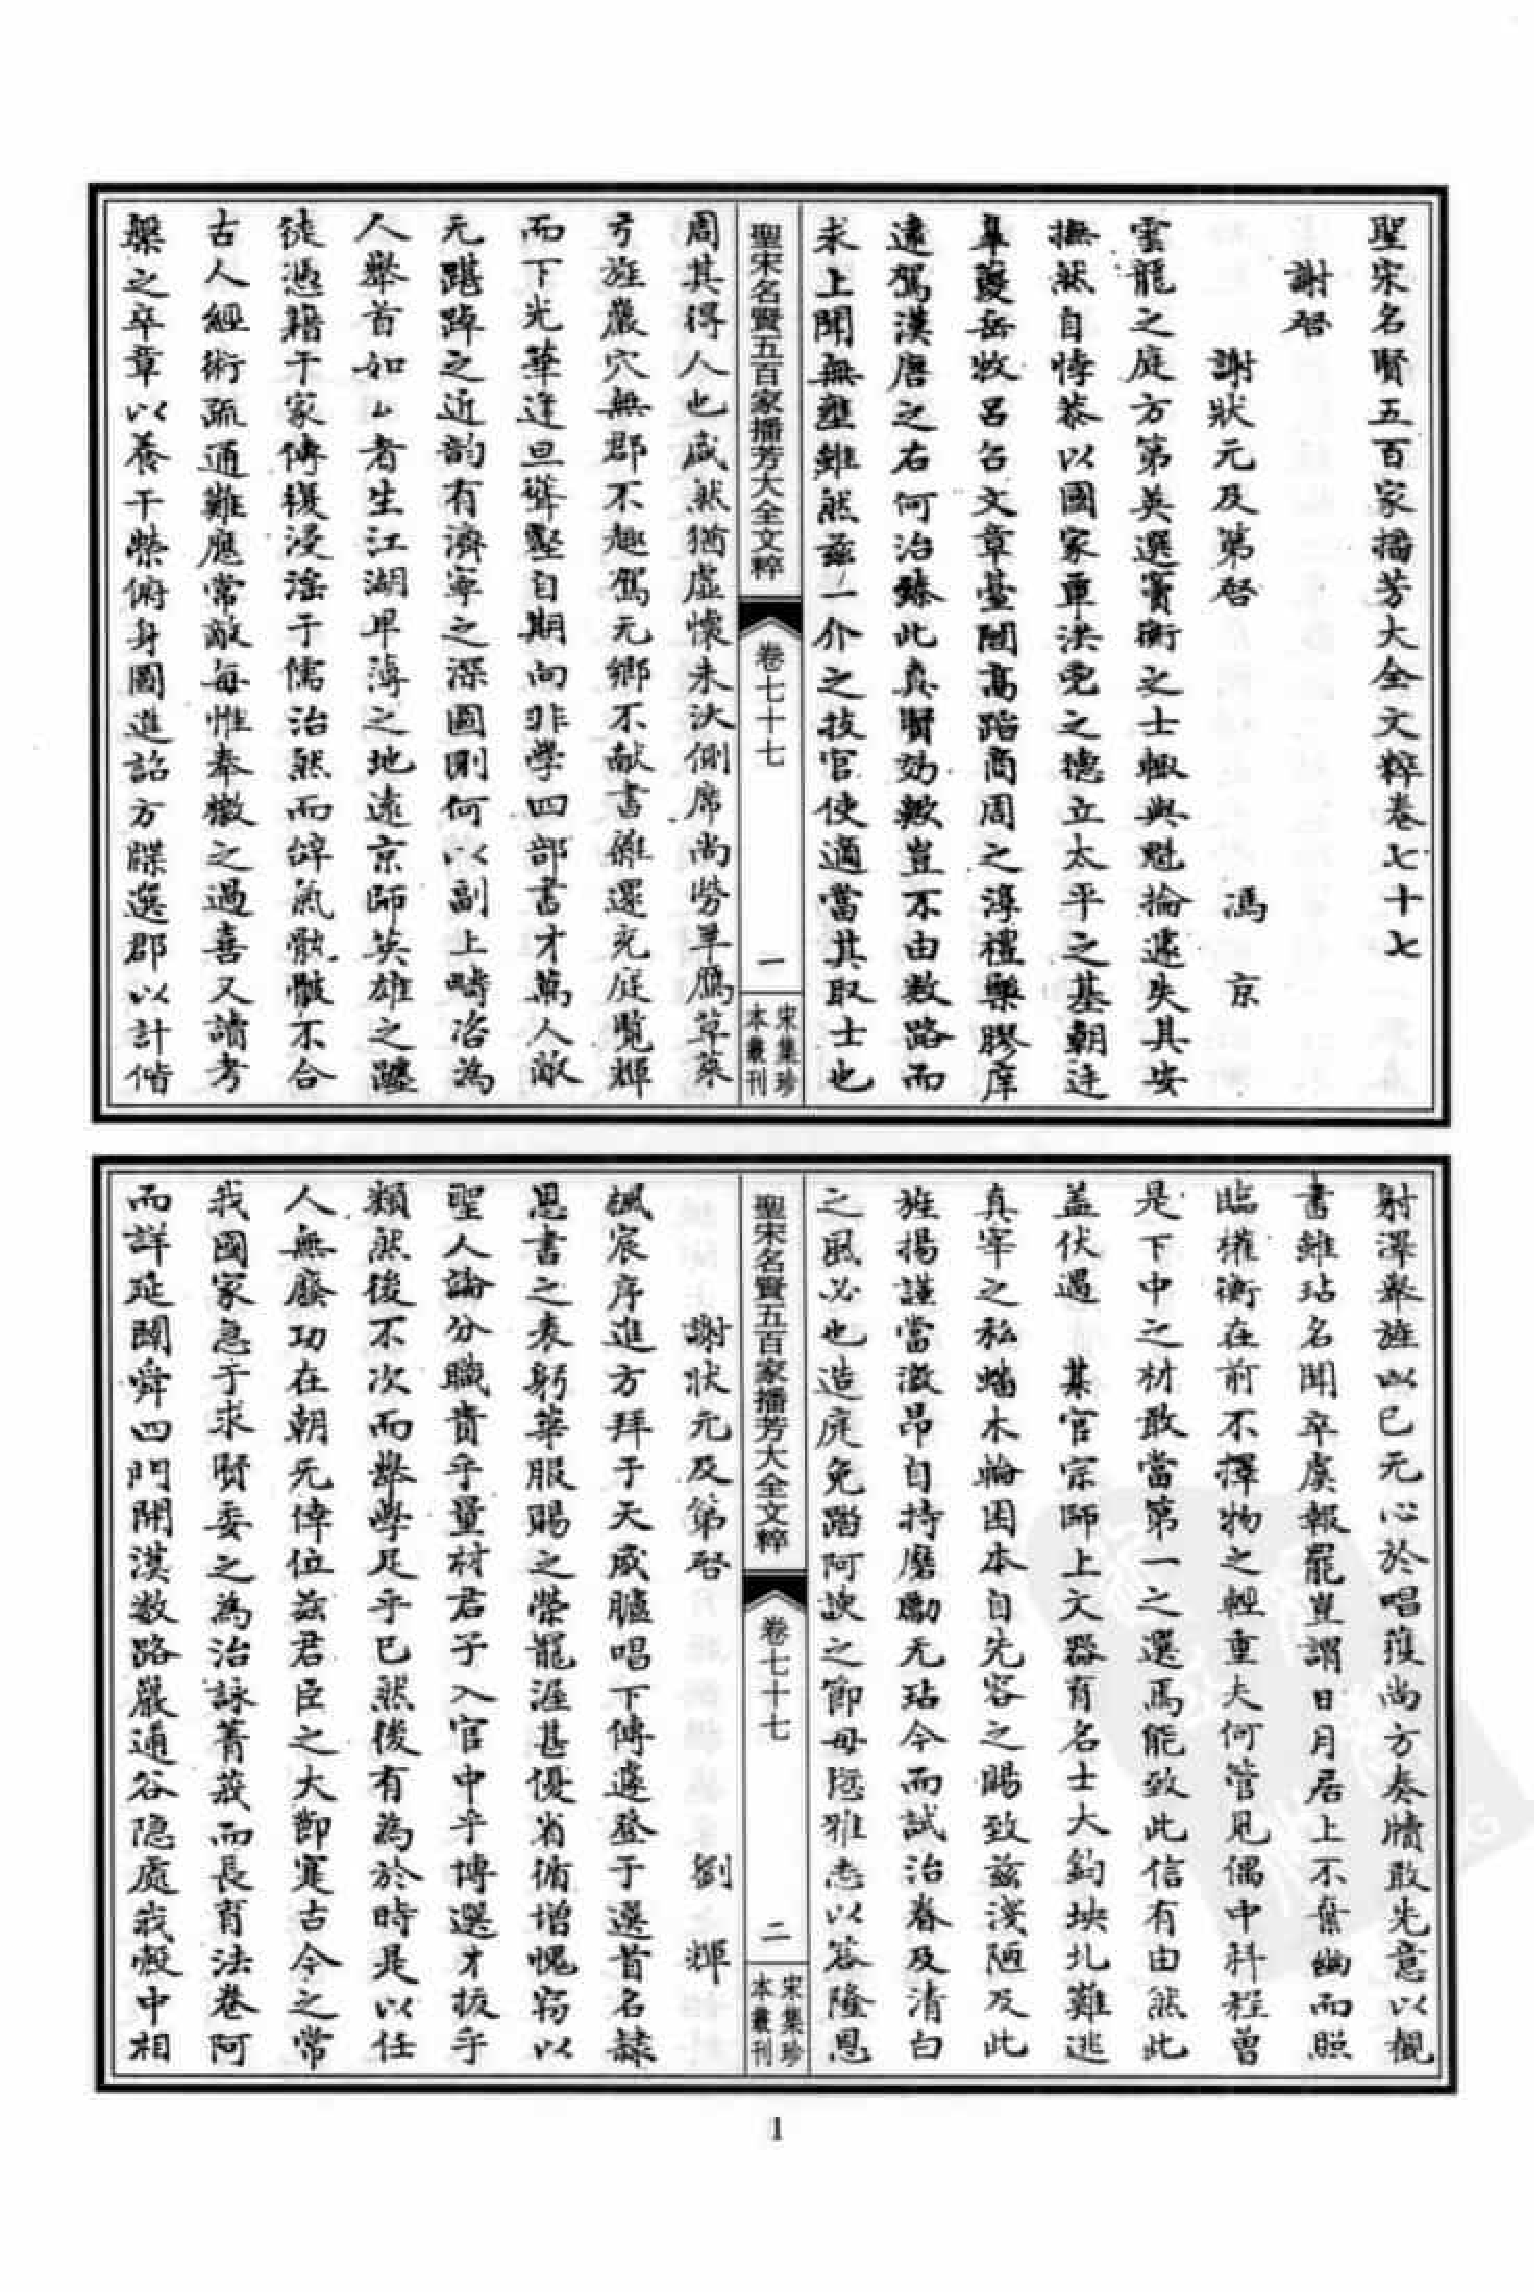 聖宋名賢五百家播芳大全文粹卷七十七
謝啓
謝狀元及第啓 馮京
雲龍之庭方第英選寳衡之士輙與魁掄遽失其安
撫然自悸恭以國家重洪兗之德立太平之基朝迋
皐夔岳牧呂召文章臺閣高蹈商周之淳禮樂膠庠
遠駕漢唐之右何治臻此真賢効歟豈不由数路而
求上聞無壅雖然兹一介之技官使適當其取士也
周其得人也咸然猶虛懷未決側席尚勞羊鴈草萊
弓旌嚴穴無郡不趣駕元鄉不献書雜還充庭覧輝
而下光華逹旦聲壑自期向非學四部書才萬人敵
无踸踔之近韵有濟寧之深圖則何以副上疇咨為
人舉首如厶者生江湖卑薄之地遠京師英雄之躔
徒憑藉于家傳復浸滛于儒治然而辞氣骯髒不合
古人經術疏通難應常敵每惟奉檄之過喜又讀考
槃之卒章以養干榮俯身圖進詔方牒選郡以計偕
射澤聚旌凶已元心於唱蒦尚方奏牘敢先意以覩
書雖玷名聞卒虞報罷豈謂日月居上不棄幽而照
臨權衡在前不擇物之輕重夫何管見偶中科程曾
是下中之材敢當第一之選焉能致此信有由然此
盖伏遇 某官宗師上文器育名士大鈞坱圠難逃
真宰之私蟠木輪囷本自先容之賜致兹淺陋及此
旌揚謹當激昂自持磨勵无玷今而試治春及清白
之風必也造庭免蹈阿諛之節毋隳雅志以荅隆恩
謝狀元及第啓 劉輝
楓宸序進方拜于天威臚唱下傳遽登于選首名隷
恩書之表躬華服賜之榮寵渥甚優省循增愧竊以
聖人論分職貴乎量材君子入官中乎博選才扳乎
類然後不次而舉學足乎已然後有為於時是以任
人無廢功在朝无偉位兹君臣之大節寔古今之常
我國家急于求賢委之為治詠菁莪而長育法卷阿
而詳延闢舜四門開漢数路嚴通谷隐處莪嘏中相
聖宋名賢五百家播芳大全文粹 卷七十七 一 宋集珍本叢刊
聖宋名賢五百家播芳大全文粹 卷七十七 二 宋集珍本叢刊
1